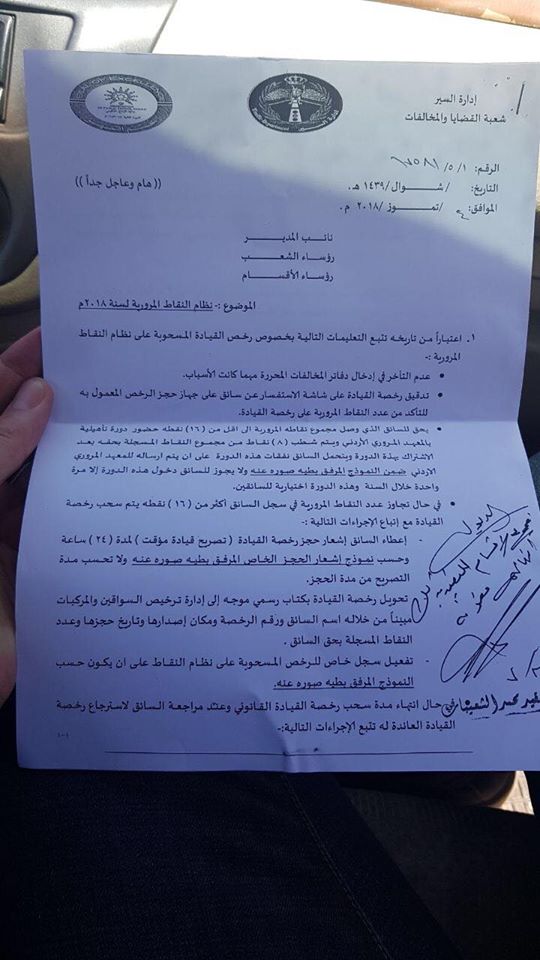 إدارة السير
شعبة القضايا والمخالفات
الرقم: ١/ ٥/
التاريخ: / شــوال/ ١٤٣٩ هـ.
الموافق: /تمــوز /٢٠١٨ م.
(( هام وعاجل جداً ))
نائب المديــر
رؤساء الشعب
رؤساء الأقسام
الموضوع :- نظام النقاط المرورية لسنة ٢٠١٨م
١. اعتباراً من تاريخه تتبع التعليمات التالية بخصوص رخص القيادة المسحوبة على نظام النقاط
المرورية :-
• عدم التأخر في إدخال دفاتر المخالفات المحررة مهما كانت الأسباب.
• تدقيق رخصة القيادة على شاشة الاستفسار عن سائق على جهاز حجز الرخص المعمول به
للتأكد من عدد النقاط المرورية على رخصة القيادة.
• يحق للسائق الذي وصل مجموع نقاطه المرورية الى اقل من (١٦) نقطه حضور دورة تأهيلية
بالمعهد المروري الأردني ويتم شطب (٨) نقاط من مجموع النقاط المسجلة بحقه بعد
الاشتراك بهذة الدورة ويتحمل السائق نفقات هذه الدورة على ان يتم ارساله للمعهد المروري
الأردني ضمن النموذج المرفق بطيه صوره عنه ولا يجوز للسائق دخول هذه الدورة إلا مرة
واحدة خلال السنة وهذه الدورة اختيارية للسائقين.
• في حال تجاوز عدد النقاط المرورية في سجل السائق أكثر من (١٦) نقطه يتم سحب رخصة
القيادة مع إتباع الإجراءات التالية:-
- إعطاء السائق إشعار حجز رخصة للقيادة ( تصريح قيادة مؤقت ) لمدة (٢٤) ساعة
وحسب نموذج إشعار الحجز الخاص المرفق بطيه صوره عنه ولا تحسب مدة
التصريح من مدة الحجز.
- تحويل رخصة القيادة بكتاب رسمي موجه إلى إدارة ترخيص السواقين والمركبات
مبيناً من خلاله اسم السائق ورقم الرخصة ومكان إصدارها وتاريخ حجزها وعدد
النقاط المسجلة بحق السائق .
- تفعيل سجل خاص للرخص المسحوبة على نظام النقاط على ان يكون حسب
النموذج المرفق بطيه صوره عنه.
في حال انتهاء مدة سحب رخصة القيادة القانوني وعند مراجعة السائق لاسترجاع رخصة
القيادة العائدة له تتبع الإجراءات التالية:-